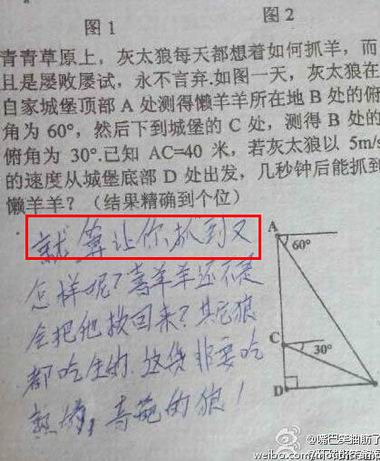 图1 图2
青青草原上，灰太狼每天都想着如何抓羊，而
且是屡败屡试，永不言弃.如图一天，灰太狼在
自家城堡顶部 A 处测得懒羊羊所在地 B 处的俯
角为 60°，然后下到城堡的 C 处，测得 B 处的
俯角为 30°.已知 AC=40 米，若灰太狼以 5m/s
的速度从城堡底部 D 处出发，几秒钟后能抓到
懒羊羊？（结果精确到个位）
就算让你抓到又
怎样呢？喜羊羊还不是
会把他救回来？其它狼
都吃生的，这货非要吃
熟的，奇葩的狼！
A
60°
C
30°
D
weibo.com/